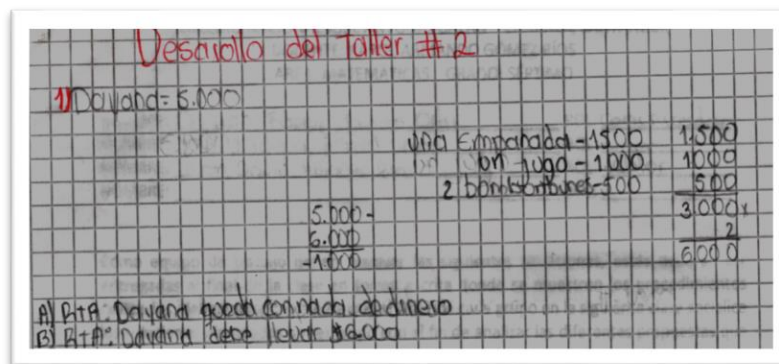 Desarrollo del Taller #2
1) Dayana = 5.000
una Empanada - 1500 1.500
un jugo - 1.000 1000
2 bombombunes - 500 500
5.000 - 3.000 x
6.000 2
-1.000 6000
A) R+A: Dayana queda con nada de dinero
B) R+A: Dayana debe llevar $6.000